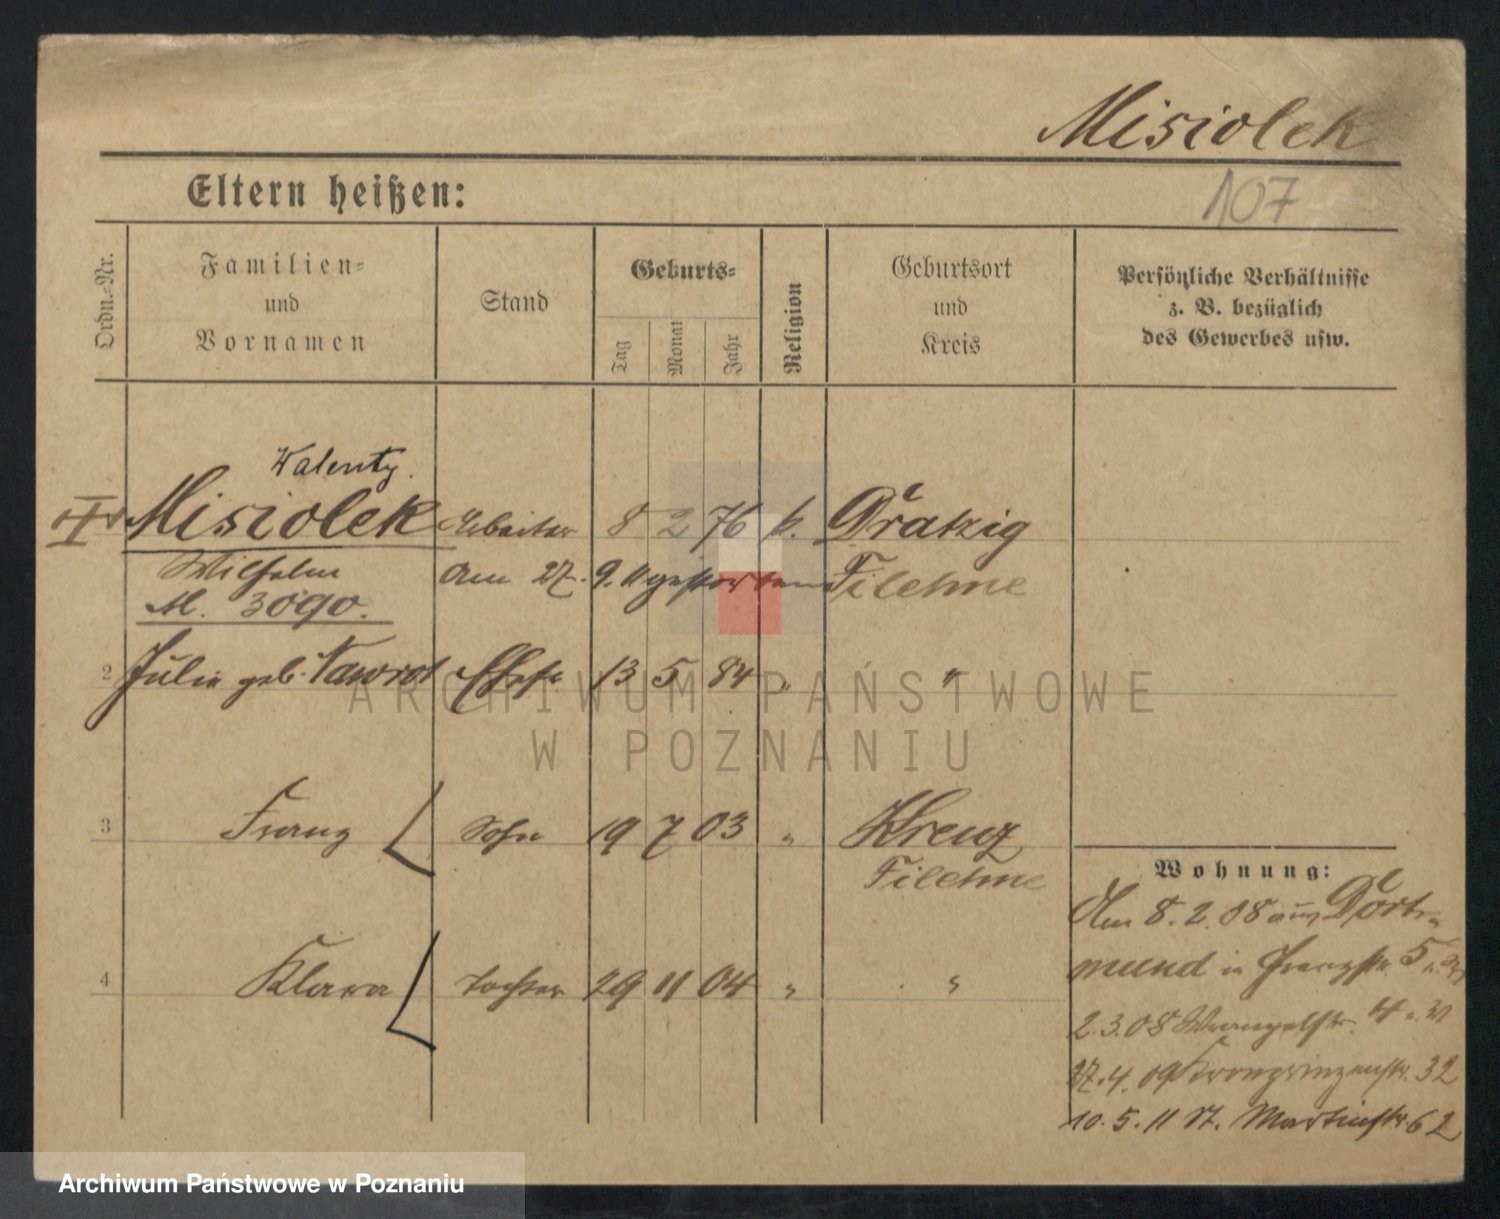 Misiolek
Eltern heißen:
107
Ordn.-Nr.
Familien-
und
Vornamen
Stand
Geburts-
Tag
Monat
Jahr
Religion
Geburtsort
und
Kreis
Persönliche Verhältnisse
z. B. bezüglich
des Gewerbes usw.
Walenty.
Misiolek Arbeiter 8 2 76 k. Dratzig
Wilhelm am 27. 9. 11 gestorben Filehne
M. 3090.
2 Julie geb. Nawrot Ehefr. 13 5 84 " "
3 Franz Sohn 19 7 03 " Kreuz
Filehne
4 Klara Tochter 29 11 04 " "
Wohnung:
Am 8. 2. 08 aus Dort-
mund in 5
2. 3. 08 Wrangelstr. 4
27. 4. 09 Kronprinzenstr. 32
10. 5. 11 St. Martinstr. 62
ARCHIWUM PAŃSTWOWE
W POZNANIU
Archiwum Państwowe w Poznaniu